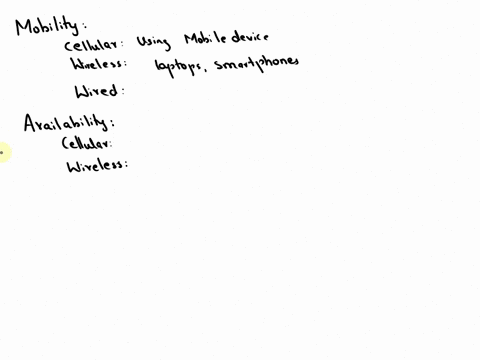 Mobility:
Cellular: Using Mobile device
Wireless: laptops, smartphones
Wired:
Availability:
Cellular:
Wireless: